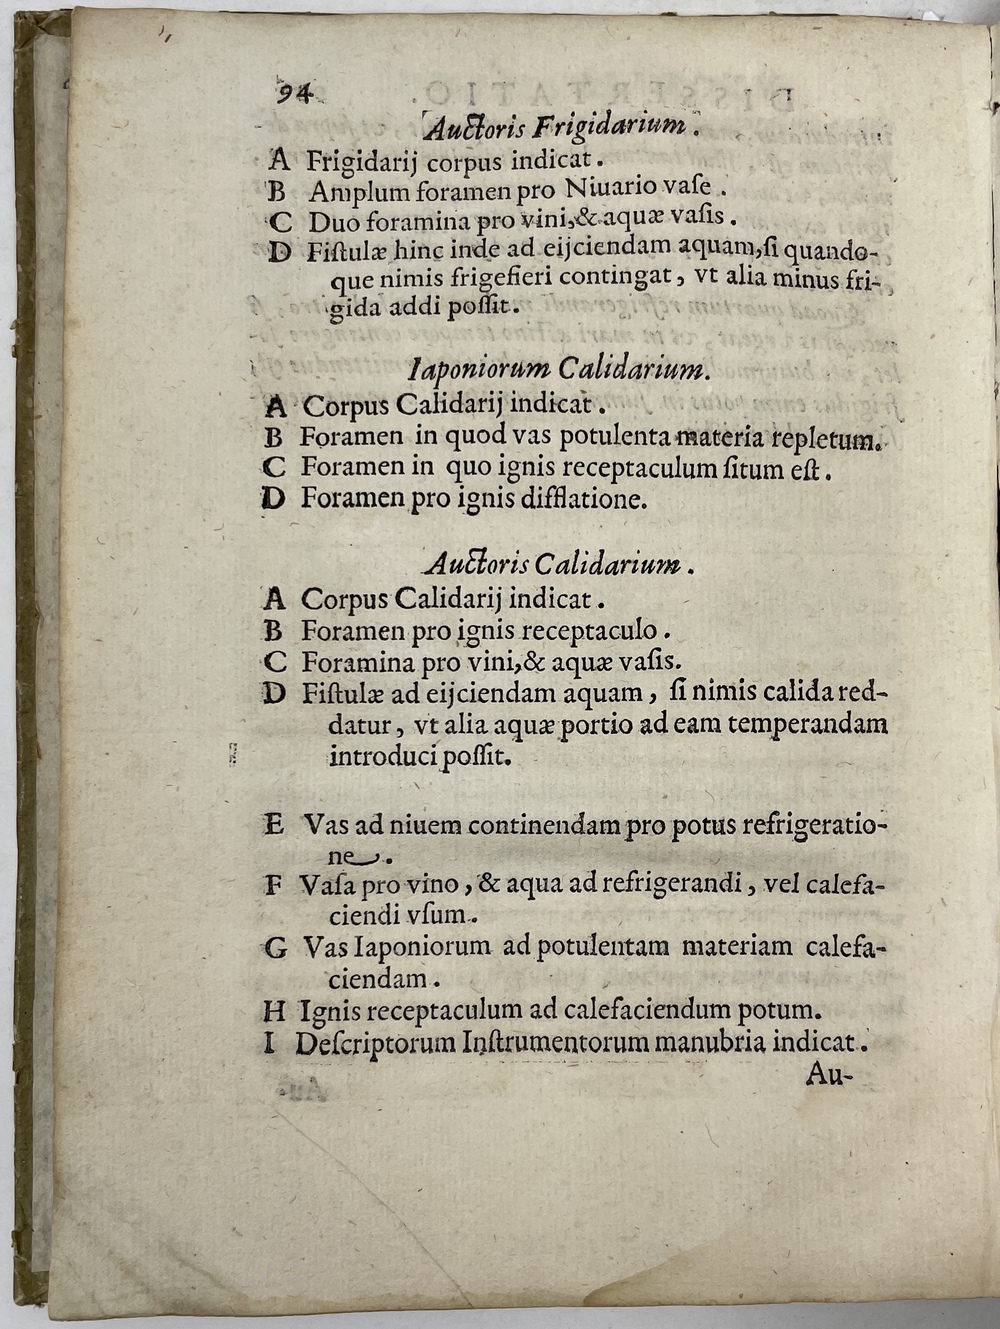 94
Auctoris Frigidarium.
A Frigidarij corpus indicat.
B Amplum foramen pro Niuario vaſe.
C Duo foramina pro vini,& aquæ vaſis.
D Fiſtulæ hinc inde ad eijciendam aquam,ſi quando-
que nimis frigefieri contingat, vt alia minus fri-
gida addi poſſit.
Iaponiorum Calidarium.
A Corpus Calidarij indicat.
B Foramen in quod vas potulenta materia repletum.
C Foramen in quo ignis receptaculum ſitum eſt.
D Foramen pro ignis difflatione.
Auctoris Calidarium.
A Corpus Calidarij indicat.
B Foramen pro ignis receptaculo.
C Foramina pro vini,& aquæ vaſis.
D Fiſtulæ ad eijciendam aquam, ſi nimis calida red-
datur, vt alia aquæ portio ad eam temperandam
introduci poſſit.
E Vas ad niuem continendam pro potus refrigeratio-
ne.
F Vaſa pro vino, & aqua ad refrigerandi, vel calefa-
ciendi vſum.
G Vas Iaponiorum ad potulentam materiam calefa-
ciendam.
H Ignis receptaculum ad calefaciendum potum.
I Deſcriptorum Inſtrumentorum manubria indicat.
Au-